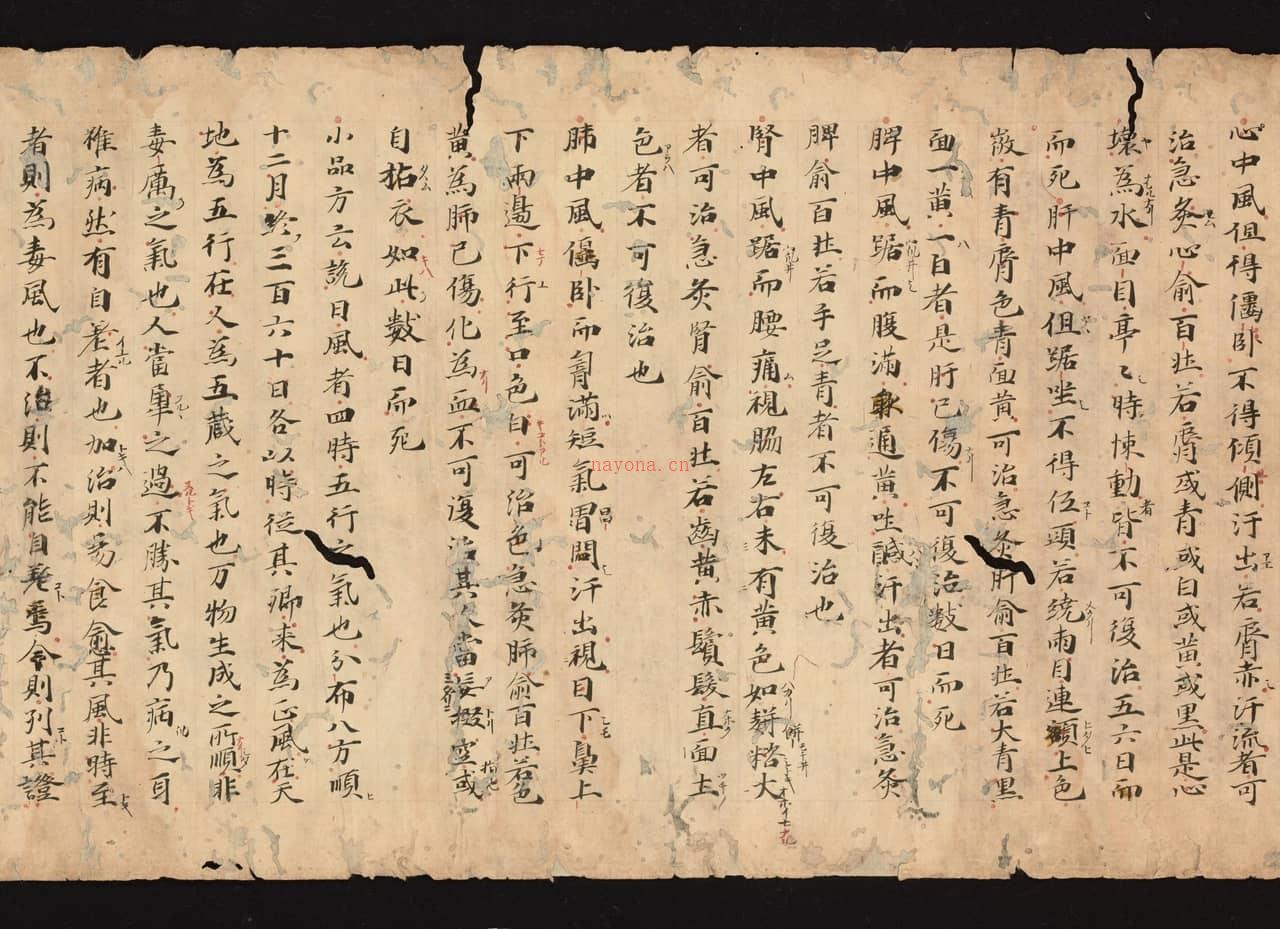 心中風但得偃卧不得傾側汗出若脣赤汗流者可
治急灸心俞百壮若脣或青或白或黄或黒此是心
壊為水面目亭〻時悚動皆不可復治五六日而
而死肝中風但踞坐不得伍頭若繞兩目連額上色
㣲有青脣色青面黄可治急灸肝俞百壮若大青黒
面一黄一白者是肝已傷不可復治数日而死
脾中風踞而腹滿 通黄吐鹹汗出者可治急灸
脾俞百壮若手足青者不可復治也
腎中風踞而腰痛視脇左右未有黄色如餅粢大
者可治急灸腎俞百壮若歯黄赤鬢髮直面土
色者不可復治也
肺中風偃卧而胷滿短氣冒悶汗出視目下鼻上
下兩邉下行至口色白可治色急灸肺俞百壮若色
黄為肺已傷化為血不可復治其人當妄掇空或
自拈衣如此数日而死
小品方云説曰風者四時五行之氣也分布八方順
十二月終三百六十日各以時従其郷来為正風在天
地為五行在人為五蔵之氣也万物生成之所順非
毒厲之氣也人當 之過不勝其氣乃病之耳
雖病然有自差者也加治則易食愈其風非時至
者則為毒風也不治則不能自差焉今則列其證
nayona.cn